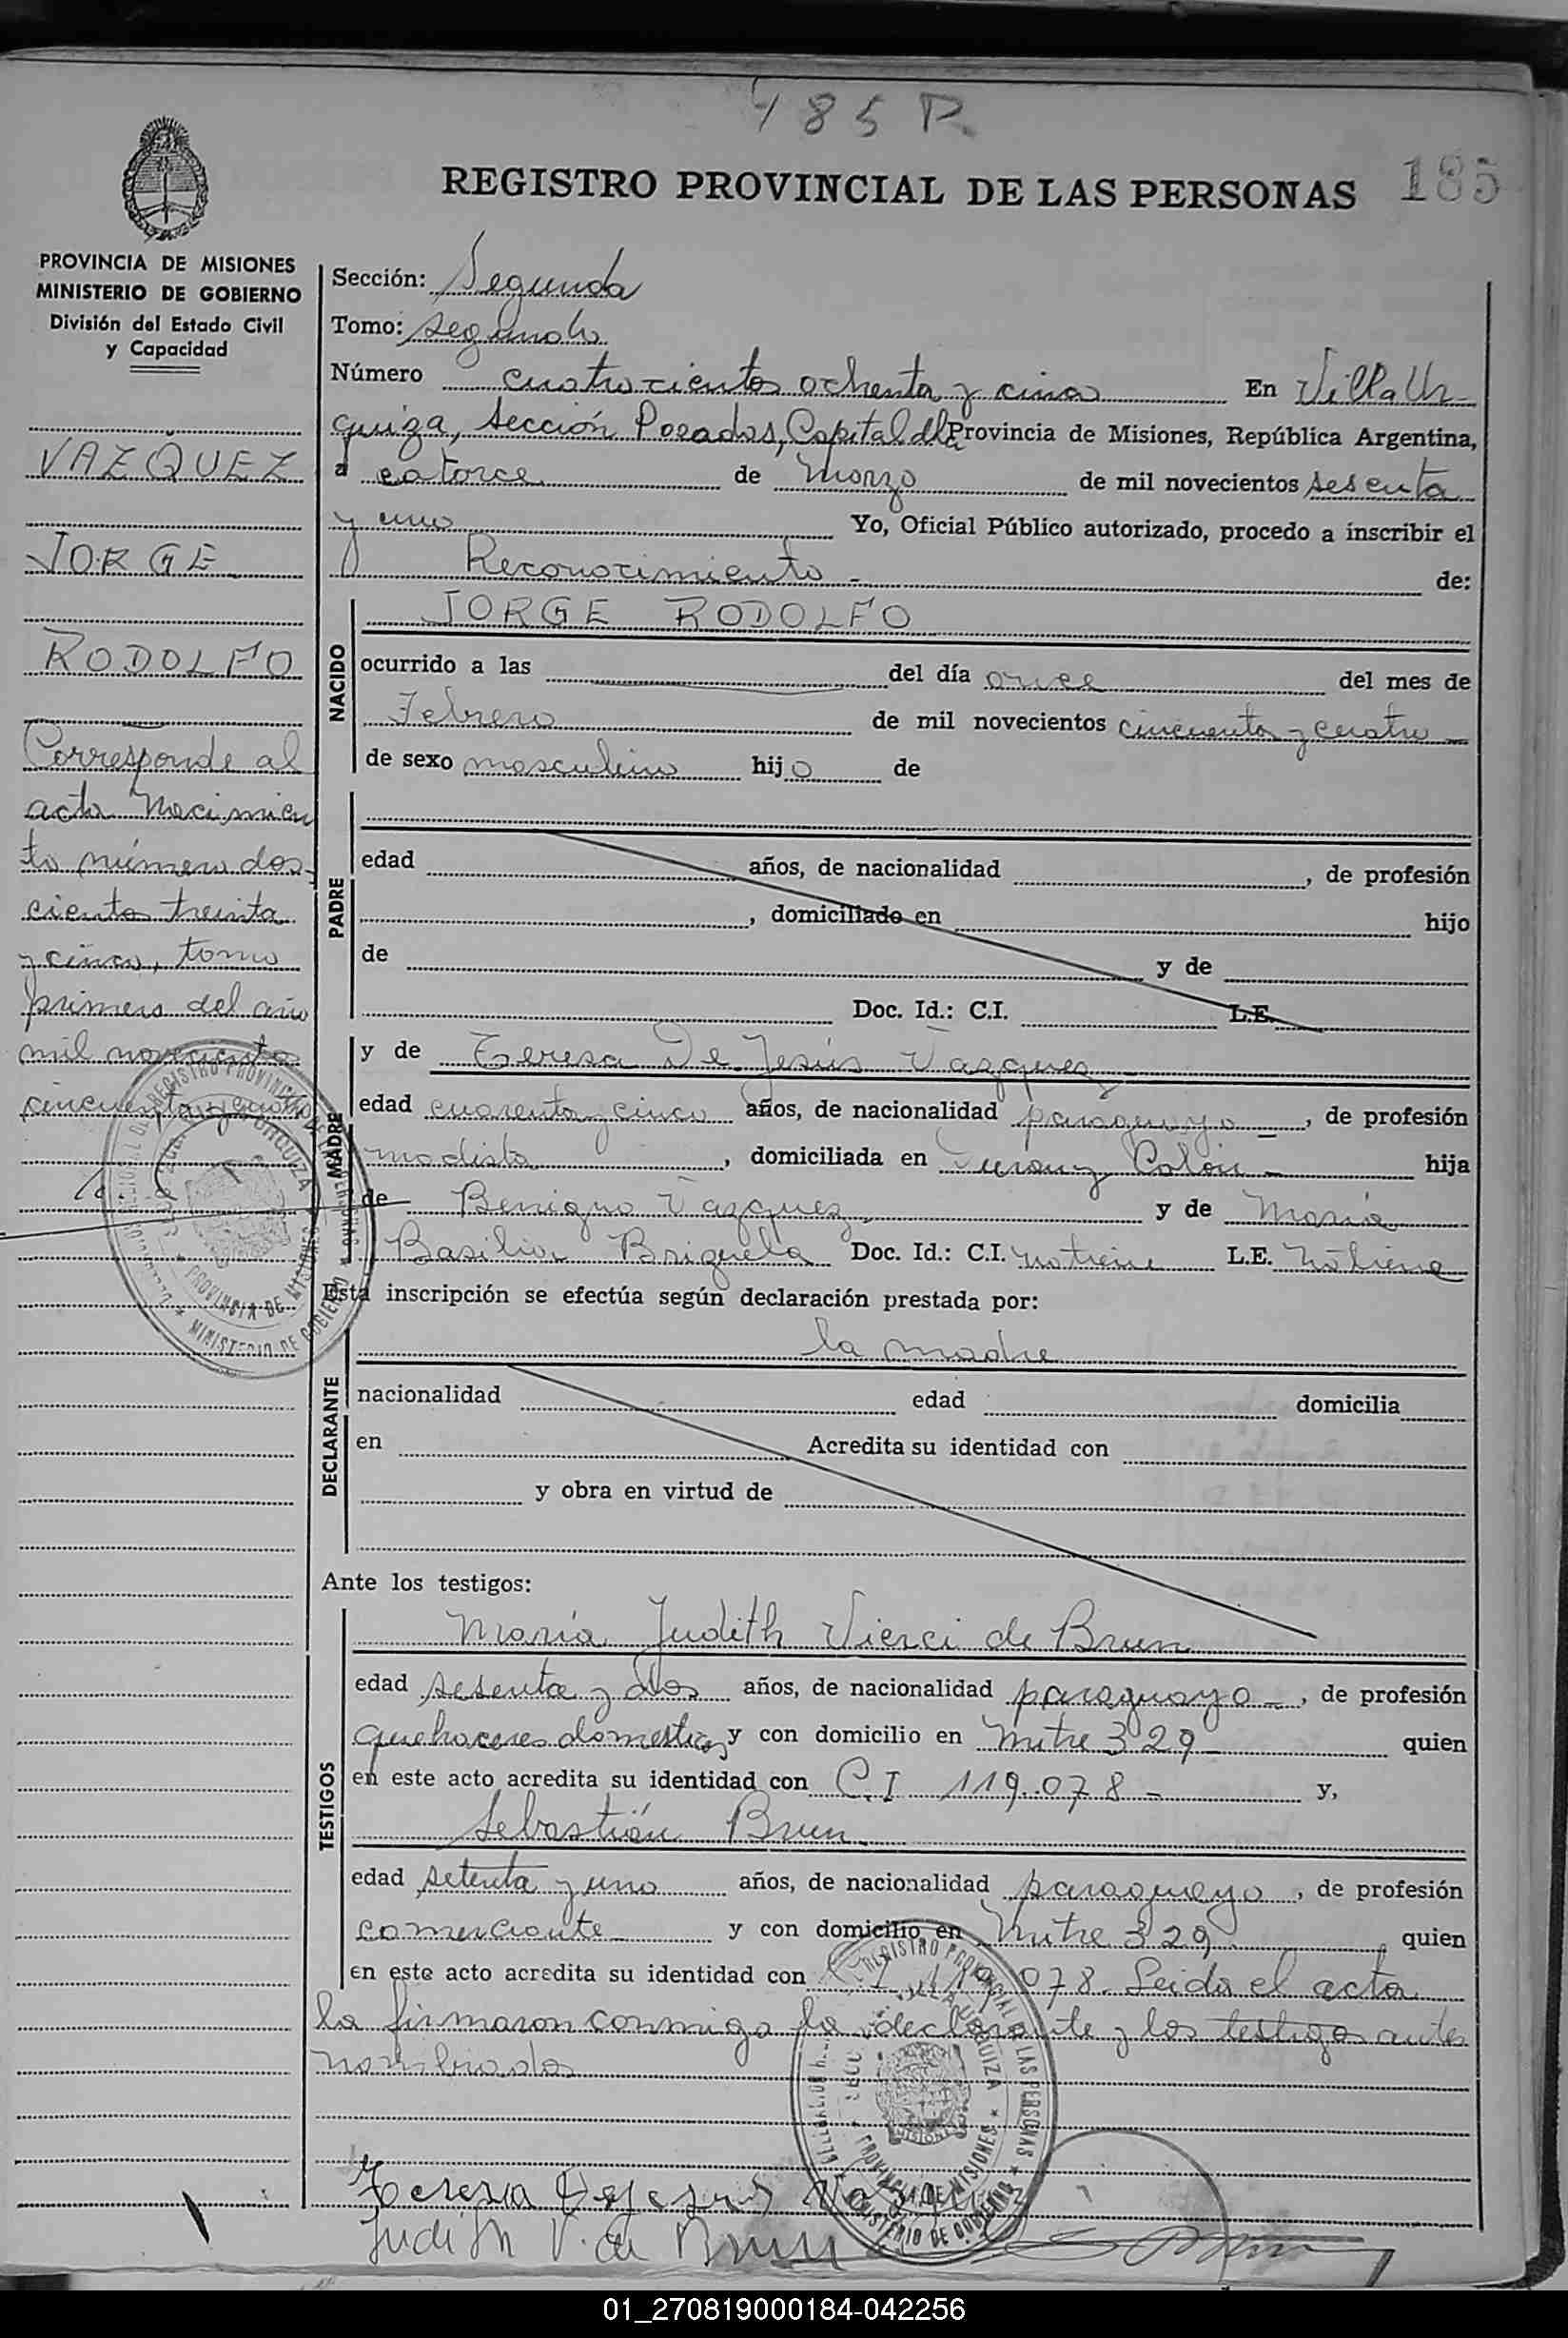 485 R.
REGISTRO PROVINCIAL DE LAS PERSONAS 185
PROVINCIA DE MISIONES
MINISTERIO DE GOBIERNO
División del Estado Civil
y Capacidad
VAZQUEZ
JORGE
RODOLFO
Corresponde al
acta Nacimien
to número dos-
cientos treinta
y cinco, tomo
primero del año
mil novecientos
cincuenta y cuatro
Sección: Segunda
Tomo: segundo
Número cuatrocientos ochenta y cinco En Villa Ur-
quiza, Sección Posadas, Capital de la Provincia de Misiones, República Argentina,
a catorce de Marzo de mil novecientos sesenta
y uno Yo, Oficial Público autorizado, procedo a inscribir el
Reconocimiento - de:
NACIDO
JORGE RODOLFO
ocurrido a las del día once del mes de
Febrero de mil novecientos cincuenta y cuatro
de sexo masculino hijo de
PADRE
edad años, de nacionalidad , de profesión
, domiciliado en hijo
de y de
Doc. Id.: C.I. L.E.
MADRE
y de Teresa De Jesús Vazquez
edad cuarenta y cinco años, de nacionalidad paraguaya - , de profesión
modista , domiciliada en y Colón - hija
de Benigno Vazquez y de María
Basilia Doc. Id.: C.I. no tiene L.E. no tiene
Esta inscripción se efectúa según declaración prestada por:
DECLARANTE
la madre
nacionalidad edad domicilia
en Acredita su identidad con
y obra en virtud de
Ante los testigos:
TESTIGOS
María Judith Vierci de Brun
edad sesenta y dos años, de nacionalidad paraguaya - , de profesión
quehaceres domesticos y con domicilio en Mitre 329 quien
en este acto acredita su identidad con C.I 119.078 - y,
Sebastián Brun
edad setenta y uno años, de nacionalidad paraguayo , de profesión
comerciante y con domicilio en Mitre 329 quien
en este acto acredita su identidad con 078. Leida el acta
la firmaron conmigo la declarante y los testigos antes
nombrados
REGISTRO PROVINCIAL DE LAS PERSONAS
VILLA URQUIZA
PROVINCIA DE MISIONES
MINISTERIO DE GOBIERNO
Teresa De Jesus Vazquez
Judith V. de Brun
01_270819000184-042256